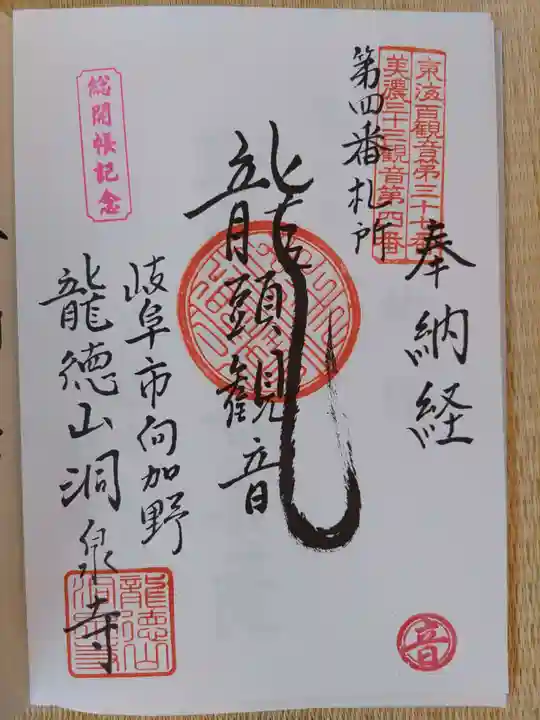 東海百観音第三十七番
美濃三十三観音第四番
奉納経
第四番札所
龍頭観音
総開帳記念
岐阜市向加野
龍徳山洞泉寺
龍徳山
洞泉寺
音